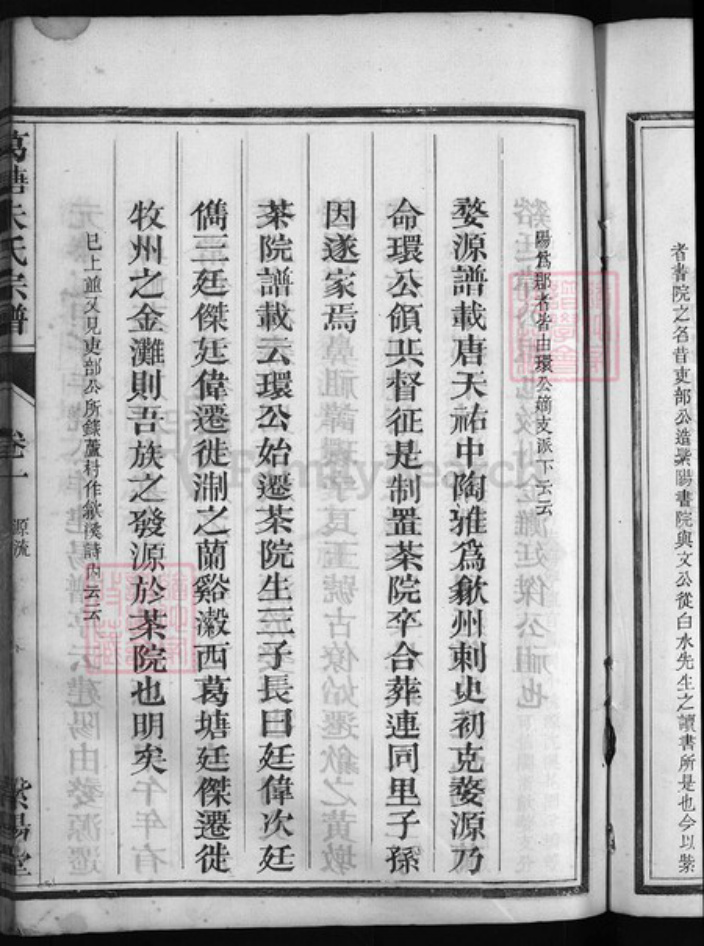 者書院之名昔吏部公造紫陽書院與文公從白水先生之讀書所是也今以紫
陽爲郡者皆由環公嫡支派下云云
婺源譜載唐天祐中陶雅爲歙州刺史初克婺源乃
命環公領兵督征是制置茶院卒合葬連同里子孫
因遂家焉
茶院譜載云環公始遷茶院生三子長曰廷偉次廷
儁三廷傑廷偉遷徙淛之蘭谿瀫西葛塘廷傑遷徙
牧州之金灘則吾族之發源於茶院也明矣
已上並又見吏部公所錄蘆村作歙溪詩內云云
葛塘朱氏宗譜
卷一
源流
紫陽堂
FamilySearch